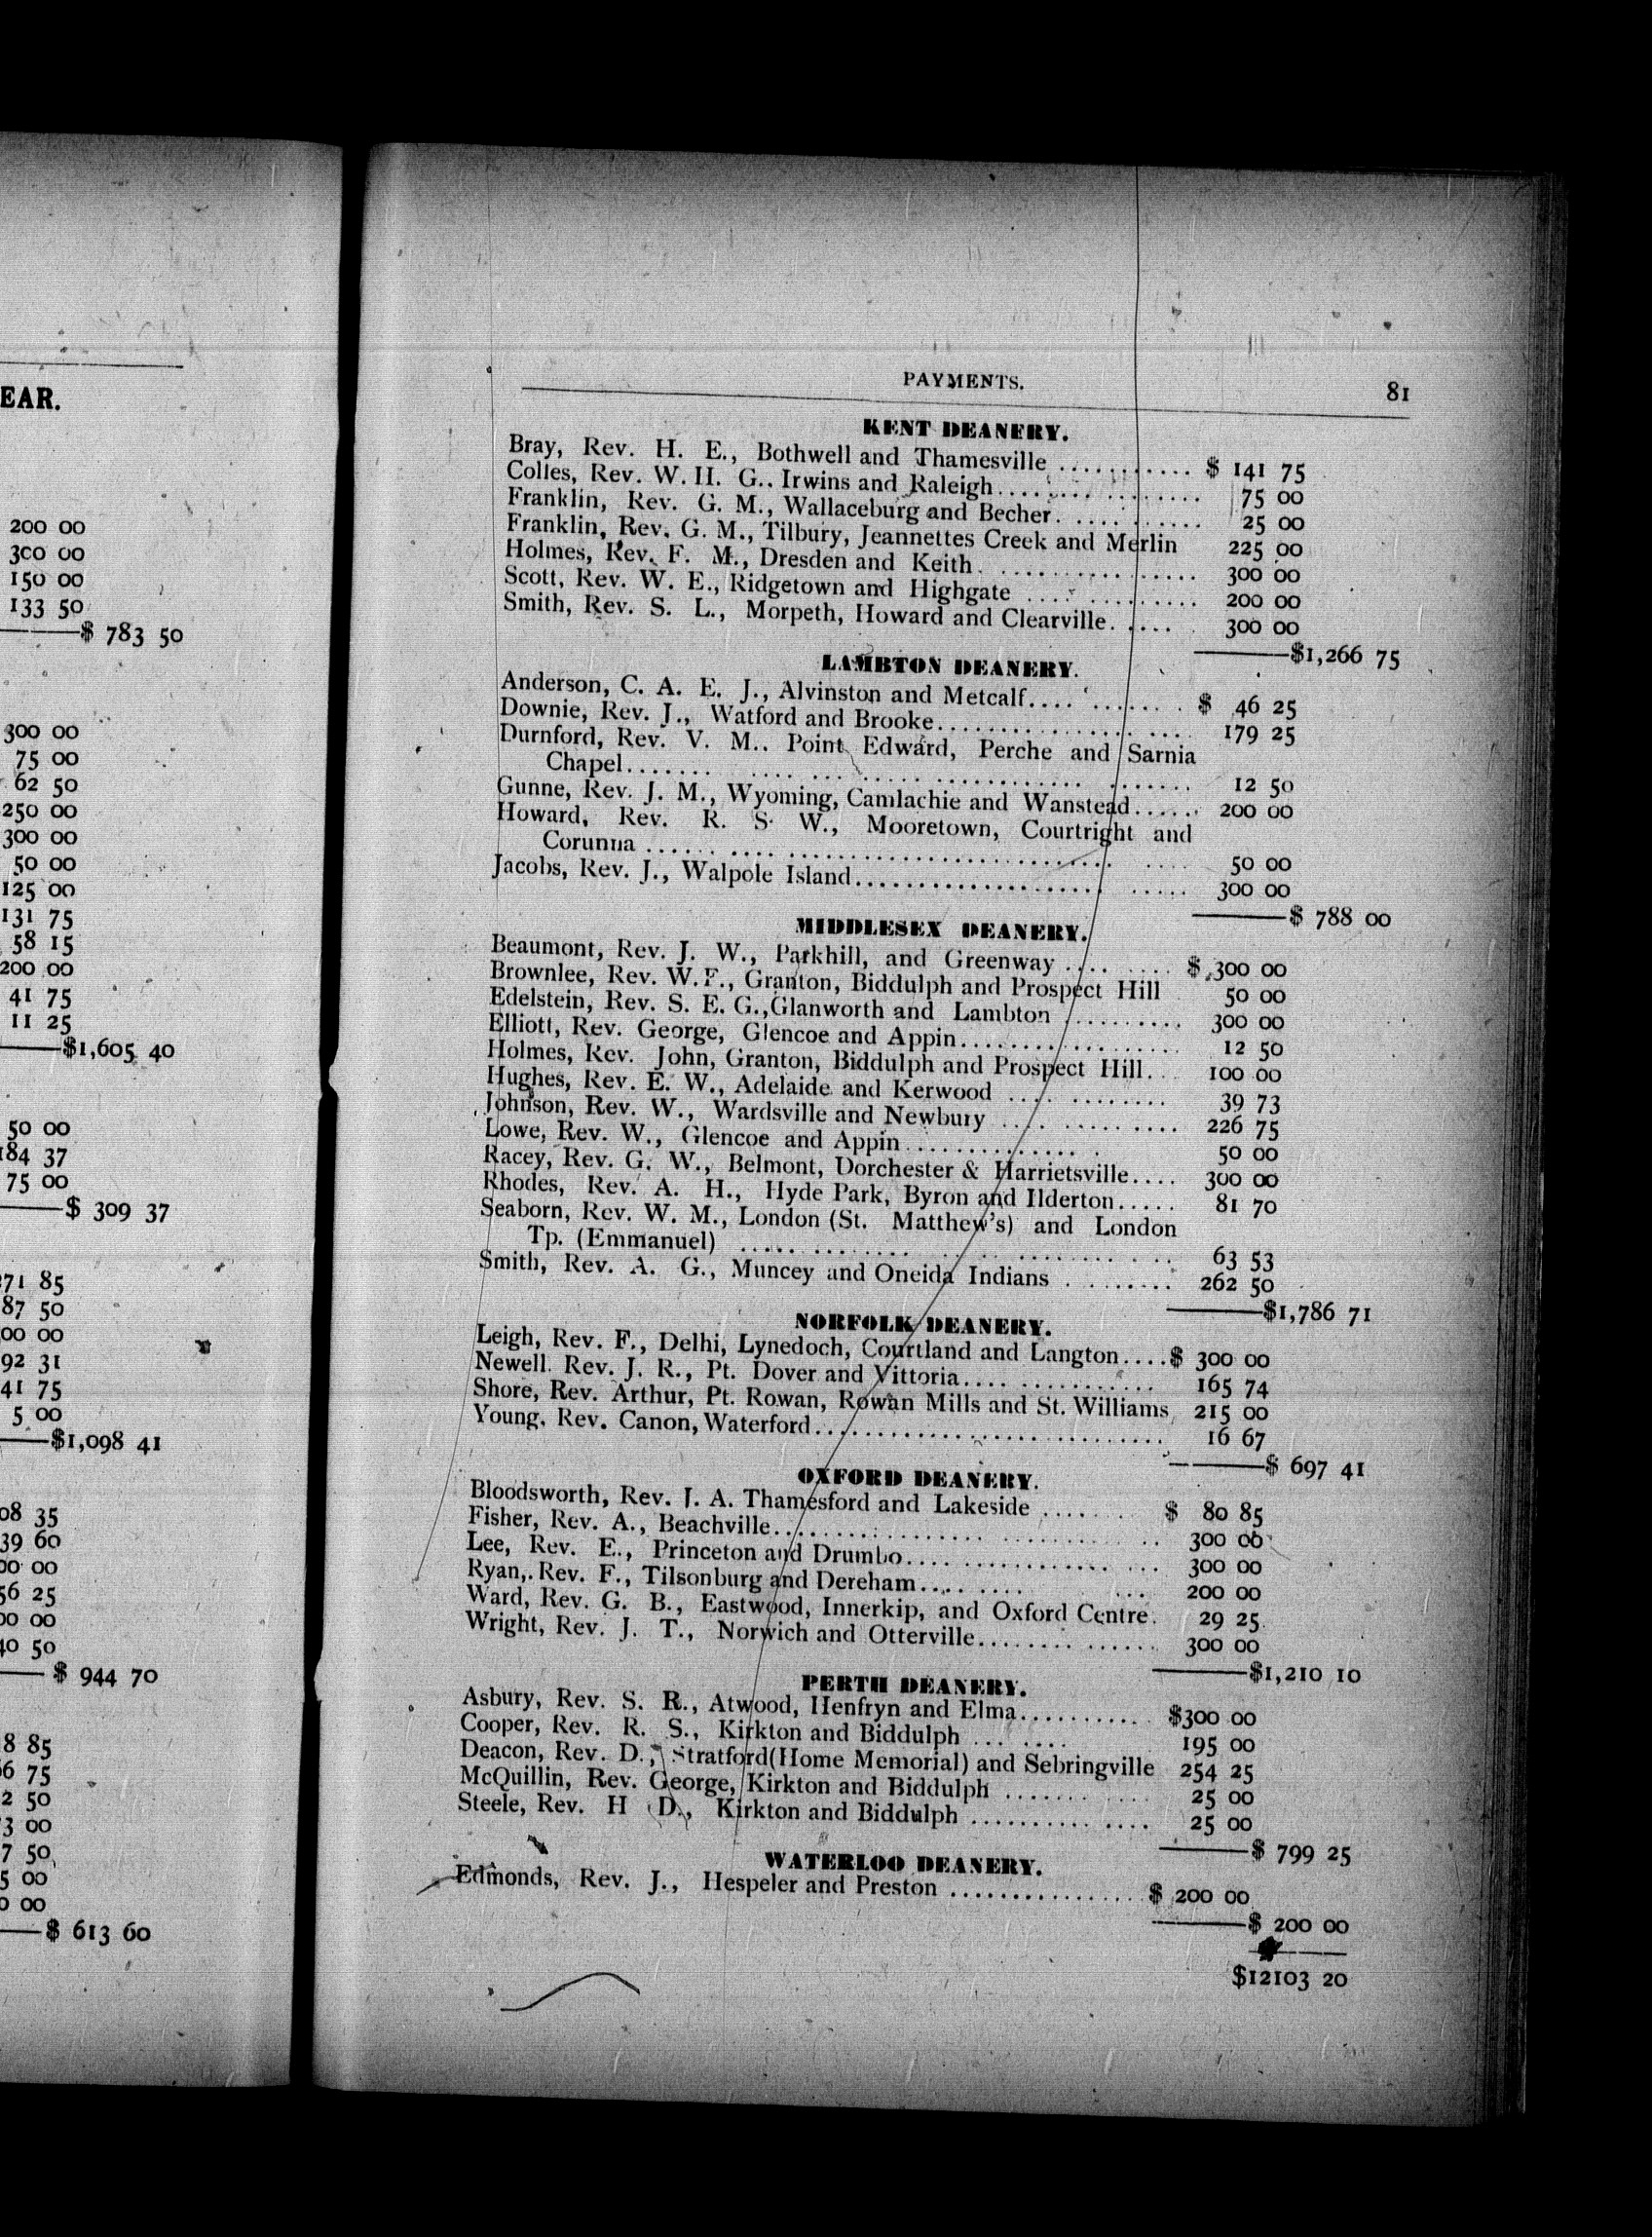 EAR.
200 00
300 00
150 00
133 50
$ 783 50
300 00
75 00
62 50
250 00
300 00
50 00
125 00
131 75
58 15
200 00
41 75
11 25
$1,605 40
50 00
184 37
75 00
$ 309 37
71 85
87 50
00 00
92 31
41 75
5 00
$1,098 41
08 35
39 60
00 00
56 25
00 00
40 50
$ 944 70
8 85
6 75
2 50
3 00
7 50
5 00
0 00
$ 613 60
PAYMENTS. 81
KENT DEANERY.
Bray, Rev. H. E., Bothwell and Thamesville ........... $ 141 75
Colles, Rev. W. H. G.. Irwins and Raleigh................ 75 00
Franklin, Rev. G. M., Wallaceburg and Becher............ 25 00
Franklin, Rev. G. M., Tilbury, Jeannettes Creek and Merlin 225 00
Holmes, Rev. F. M., Dresden and Keith................ 300 00
Scott, Rev. W. E., Ridgetown and Highgate ............ 200 00
Smith, Rev. S. L., Morpeth, Howard and Clearville...... 300 00
$1,266 75
LAMBTON DEANERY.
Anderson, C. A. E. J., Alvinston and Metcalf........... $ 46 25
Downie, Rev. J., Watford and Brooke.................... 179 25
Durnford, Rev. V. M.. Point Edward, Perche and Sarnia
Chapel........................................ 12 50
Gunne, Rev. J. M., Wyoming, Camlachie and Wanstead...... 200 00
Howard, Rev. R. S. W., Mooretown, Courtright and
Corunna ........................................ 50 00
Jacobs, Rev. J., Walpole Island......................... 300 00
$ 788 00
MIDDLESEX DEANERY.
Beaumont, Rev. J. W., Parkhill, and Greenway ........ $ 300 00
Brownlee, Rev. W. F., Granton, Biddulph and Prospect Hill 50 00
Edelstein, Rev. S. E. G., Glanworth and Lambton .......... 300 00
Elliott, Rev. George, Glencoe and Appin.................. 12 50
Holmes, Rev. John, Granton, Biddulph and Prospect Hill... 100 00
Hughes, Rev. E. W., Adelaide and Kerwood ............ 39 73
Johnson, Rev. W., Wardsville and Newbury ............. 226 75
Lowe, Rev. W., Glencoe and Appin................ 50 00
Racey, Rev. G. W., Belmont, Dorchester & Harrietsville.... 300 00
Rhodes, Rev. A. H., Hyde Park, Byron and Ilderton..... 81 70
Seaborn, Rev. W. M., London (St. Matthew's) and London
Tp. (Emmanuel) .............................. 63 53
Smith, Rev. A. G., Muncey and Oneida Indians ......... 262 50
$1,786 71
NORFOLK DEANERY.
Leigh, Rev. F., Delhi, Lynedoch, Courtland and Langton....$ 300 00
Newell. Rev. J. R., Pt. Dover and Vittoria................ 165 74
Shore, Rev. Arthur, Pt. Rowan, Rowan Mills and St. Williams 215 00
Young, Rev. Canon, Waterford............................ 16 67
$ 697 41
OXFORD DEANERY.
Bloodsworth, Rev. J. A. Thamesford and Lakeside ....... $ 80 85
Fisher, Rev. A., Beachville............................ 300 00
Lee, Rev. E., Princeton and Drumbo.................... 300 00
Ryan,. Rev. F., Tilsonburg and Dereham............ 200 00
Ward, Rev. G. B., Eastwood, Innerkip, and Oxford Centre. 29 25
Wright, Rev. J. T., Norwich and Otterville.............. 300 00
$1,210 10
PERTH DEANERY.
Asbury, Rev. S. R., Atwood, Henfryn and Elma.......... $300 00
Cooper, Rev. R. S., Kirkton and Biddulph ........ 195 00
Deacon, Rev. D., Stratford (Home Memorial) and Sebringville 254 25
McQuillin, Rev. George, Kirkton and Biddulph ............ 25 00
Steele, Rev. H D., Kirkton and Biddulph .............. 25 00
$ 799 25
WATERLOO DEANERY.
Edmonds, Rev. J., Hespeler and Preston ................ $ 200 00
$ 200 00
$12103 20